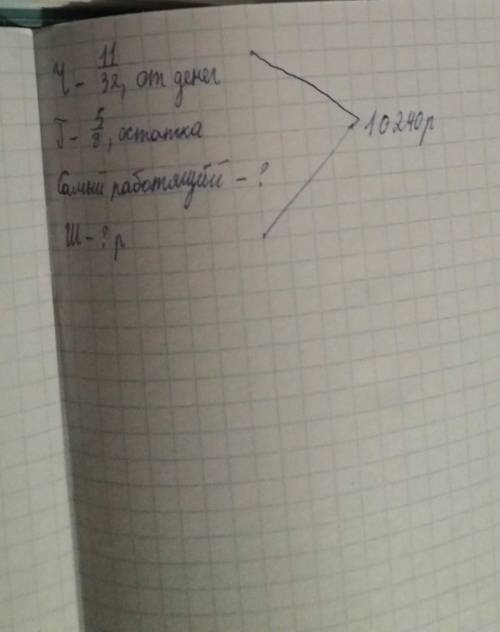 Ч - 11/32, от денег
Г - 5/8, остатка
Самый работящий - ?
Ш - ? р
10240р